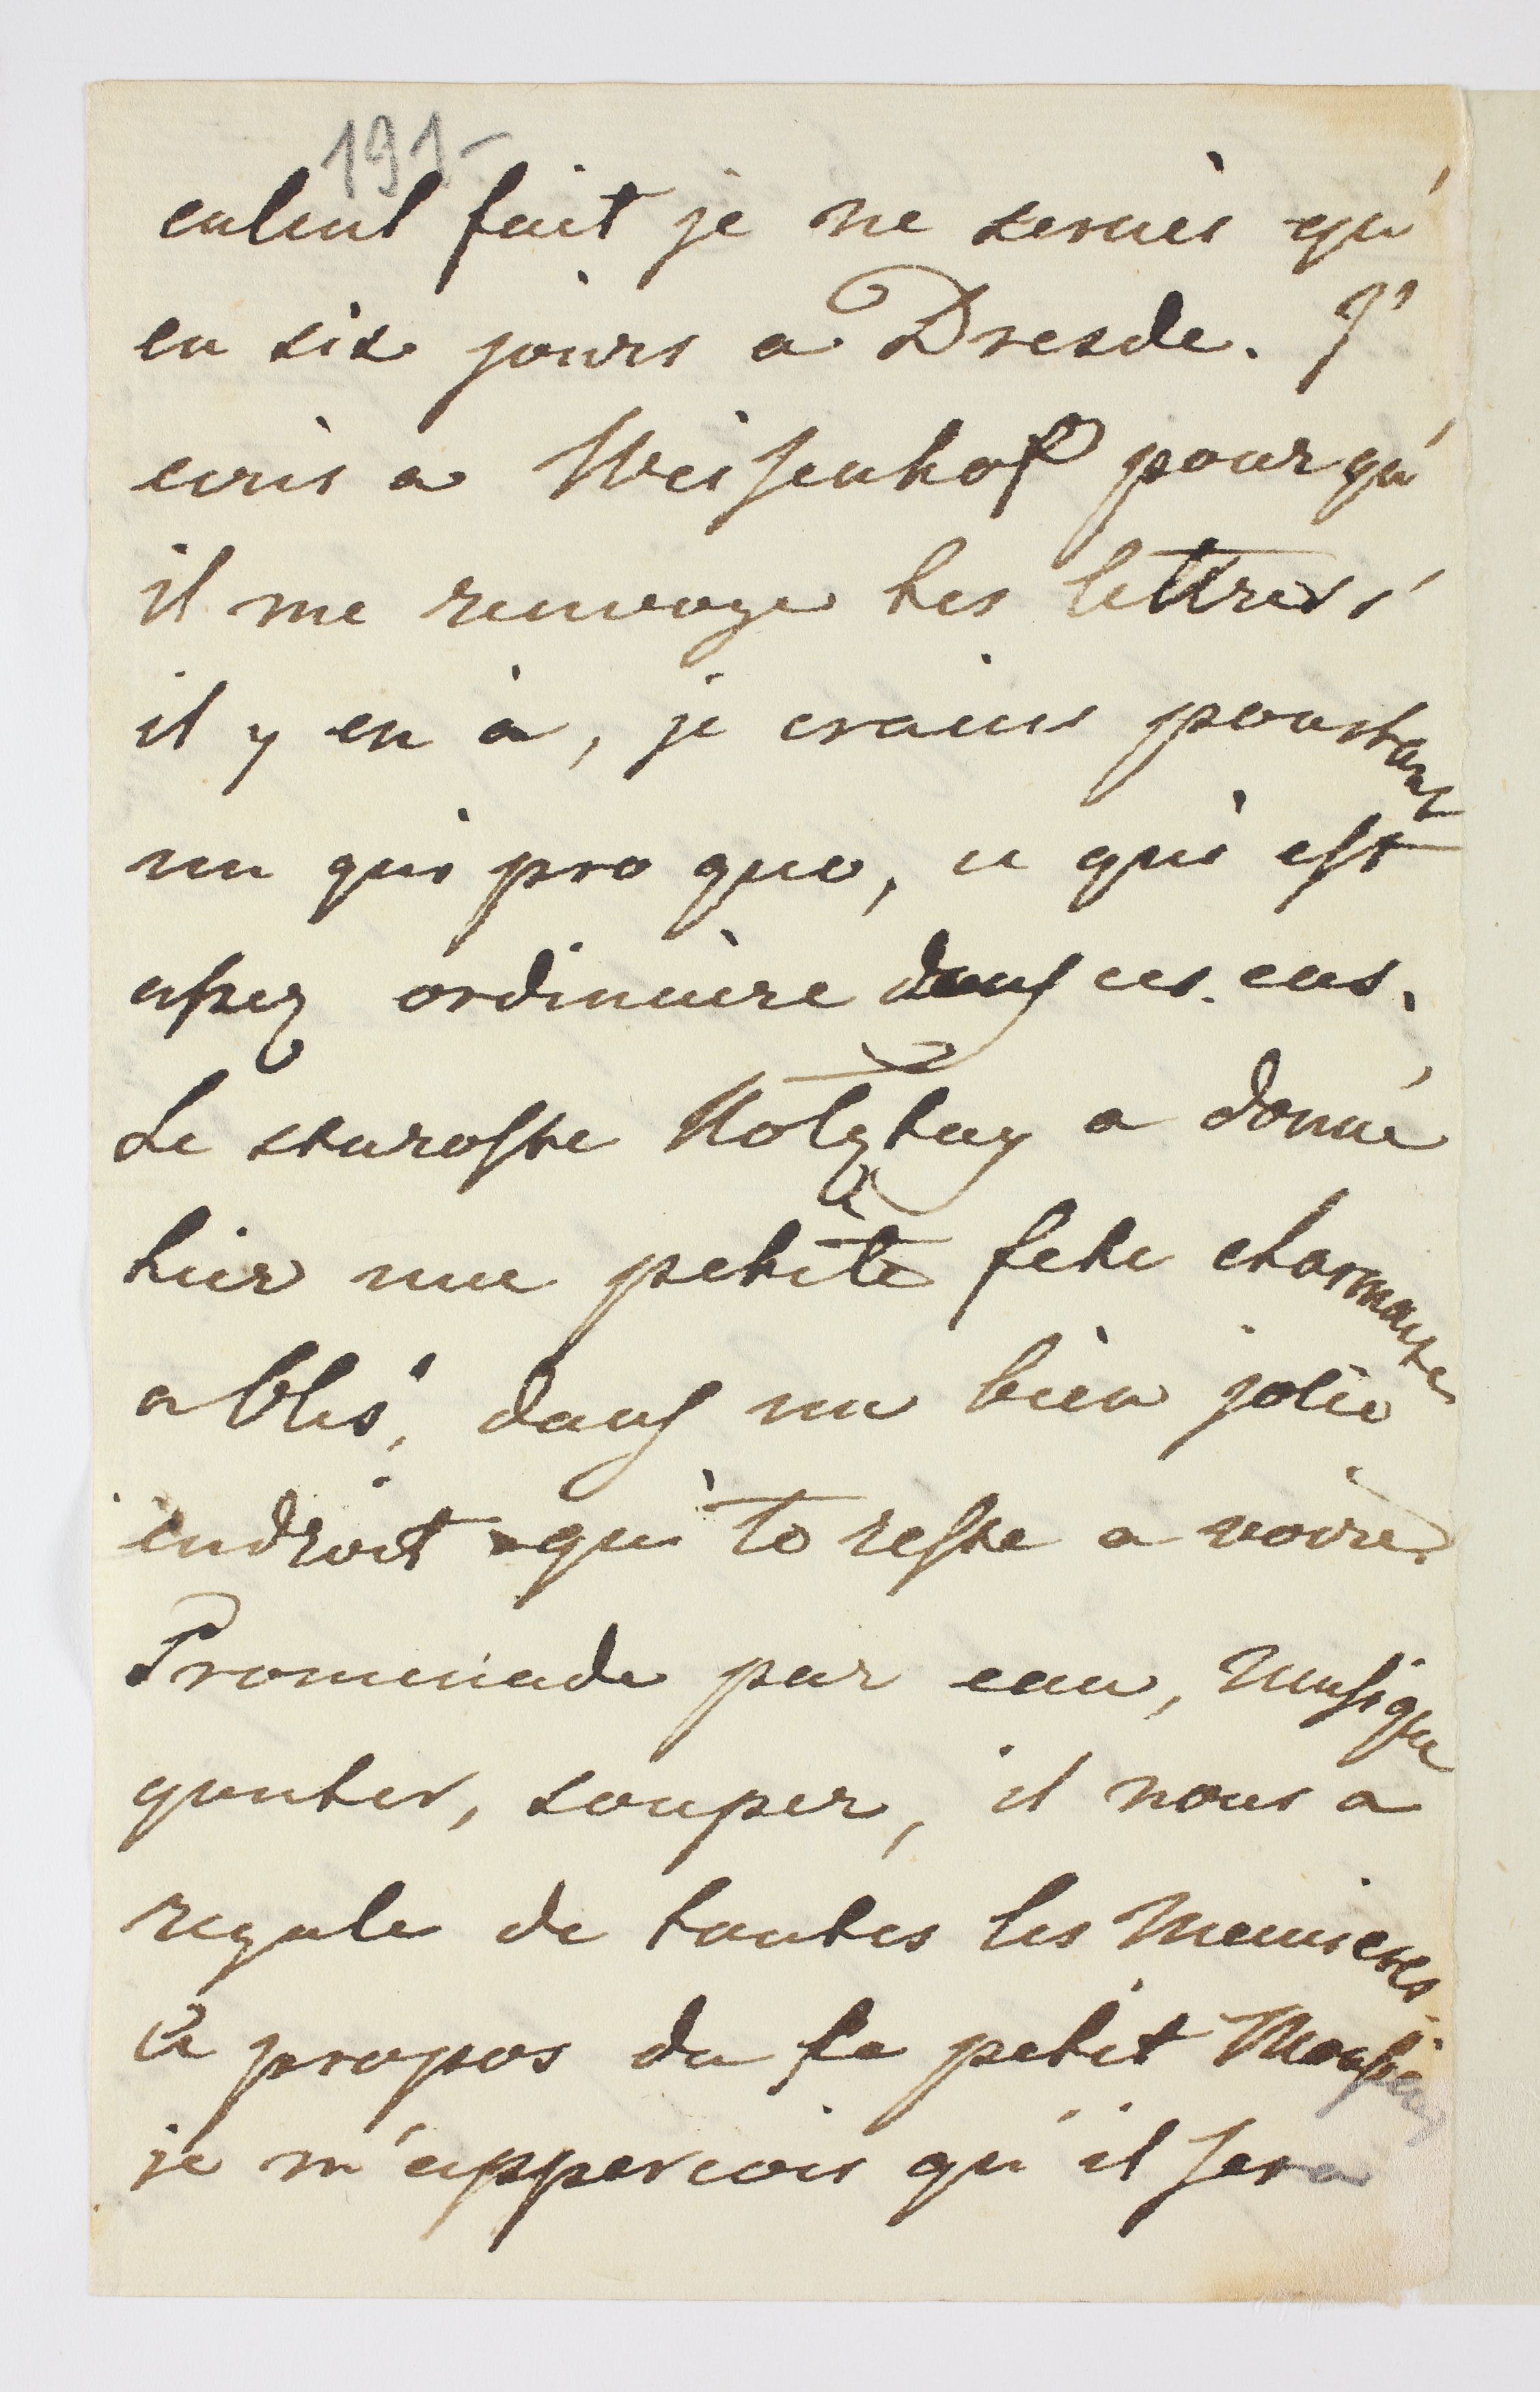 191-
calcul fait je ne serais qu'
en six jours a Dresde. J'
ecris a Weisenhof pour qu'
il me renvoye tes lettres s'
il y en à, je crains pourtant
un qui pro quo, ce qui est
assez ordinaire dans ces cas.
Le staroste a donné
hier une petite fete charmante
a dans un bien jolie
endroit qui te reste a voire.
Promenade par eau, Musique
gouter, souper, il nous a
regale de toutes les Manieres.
a propos du fe petit Monsieur
je m'appercois qu'il sera